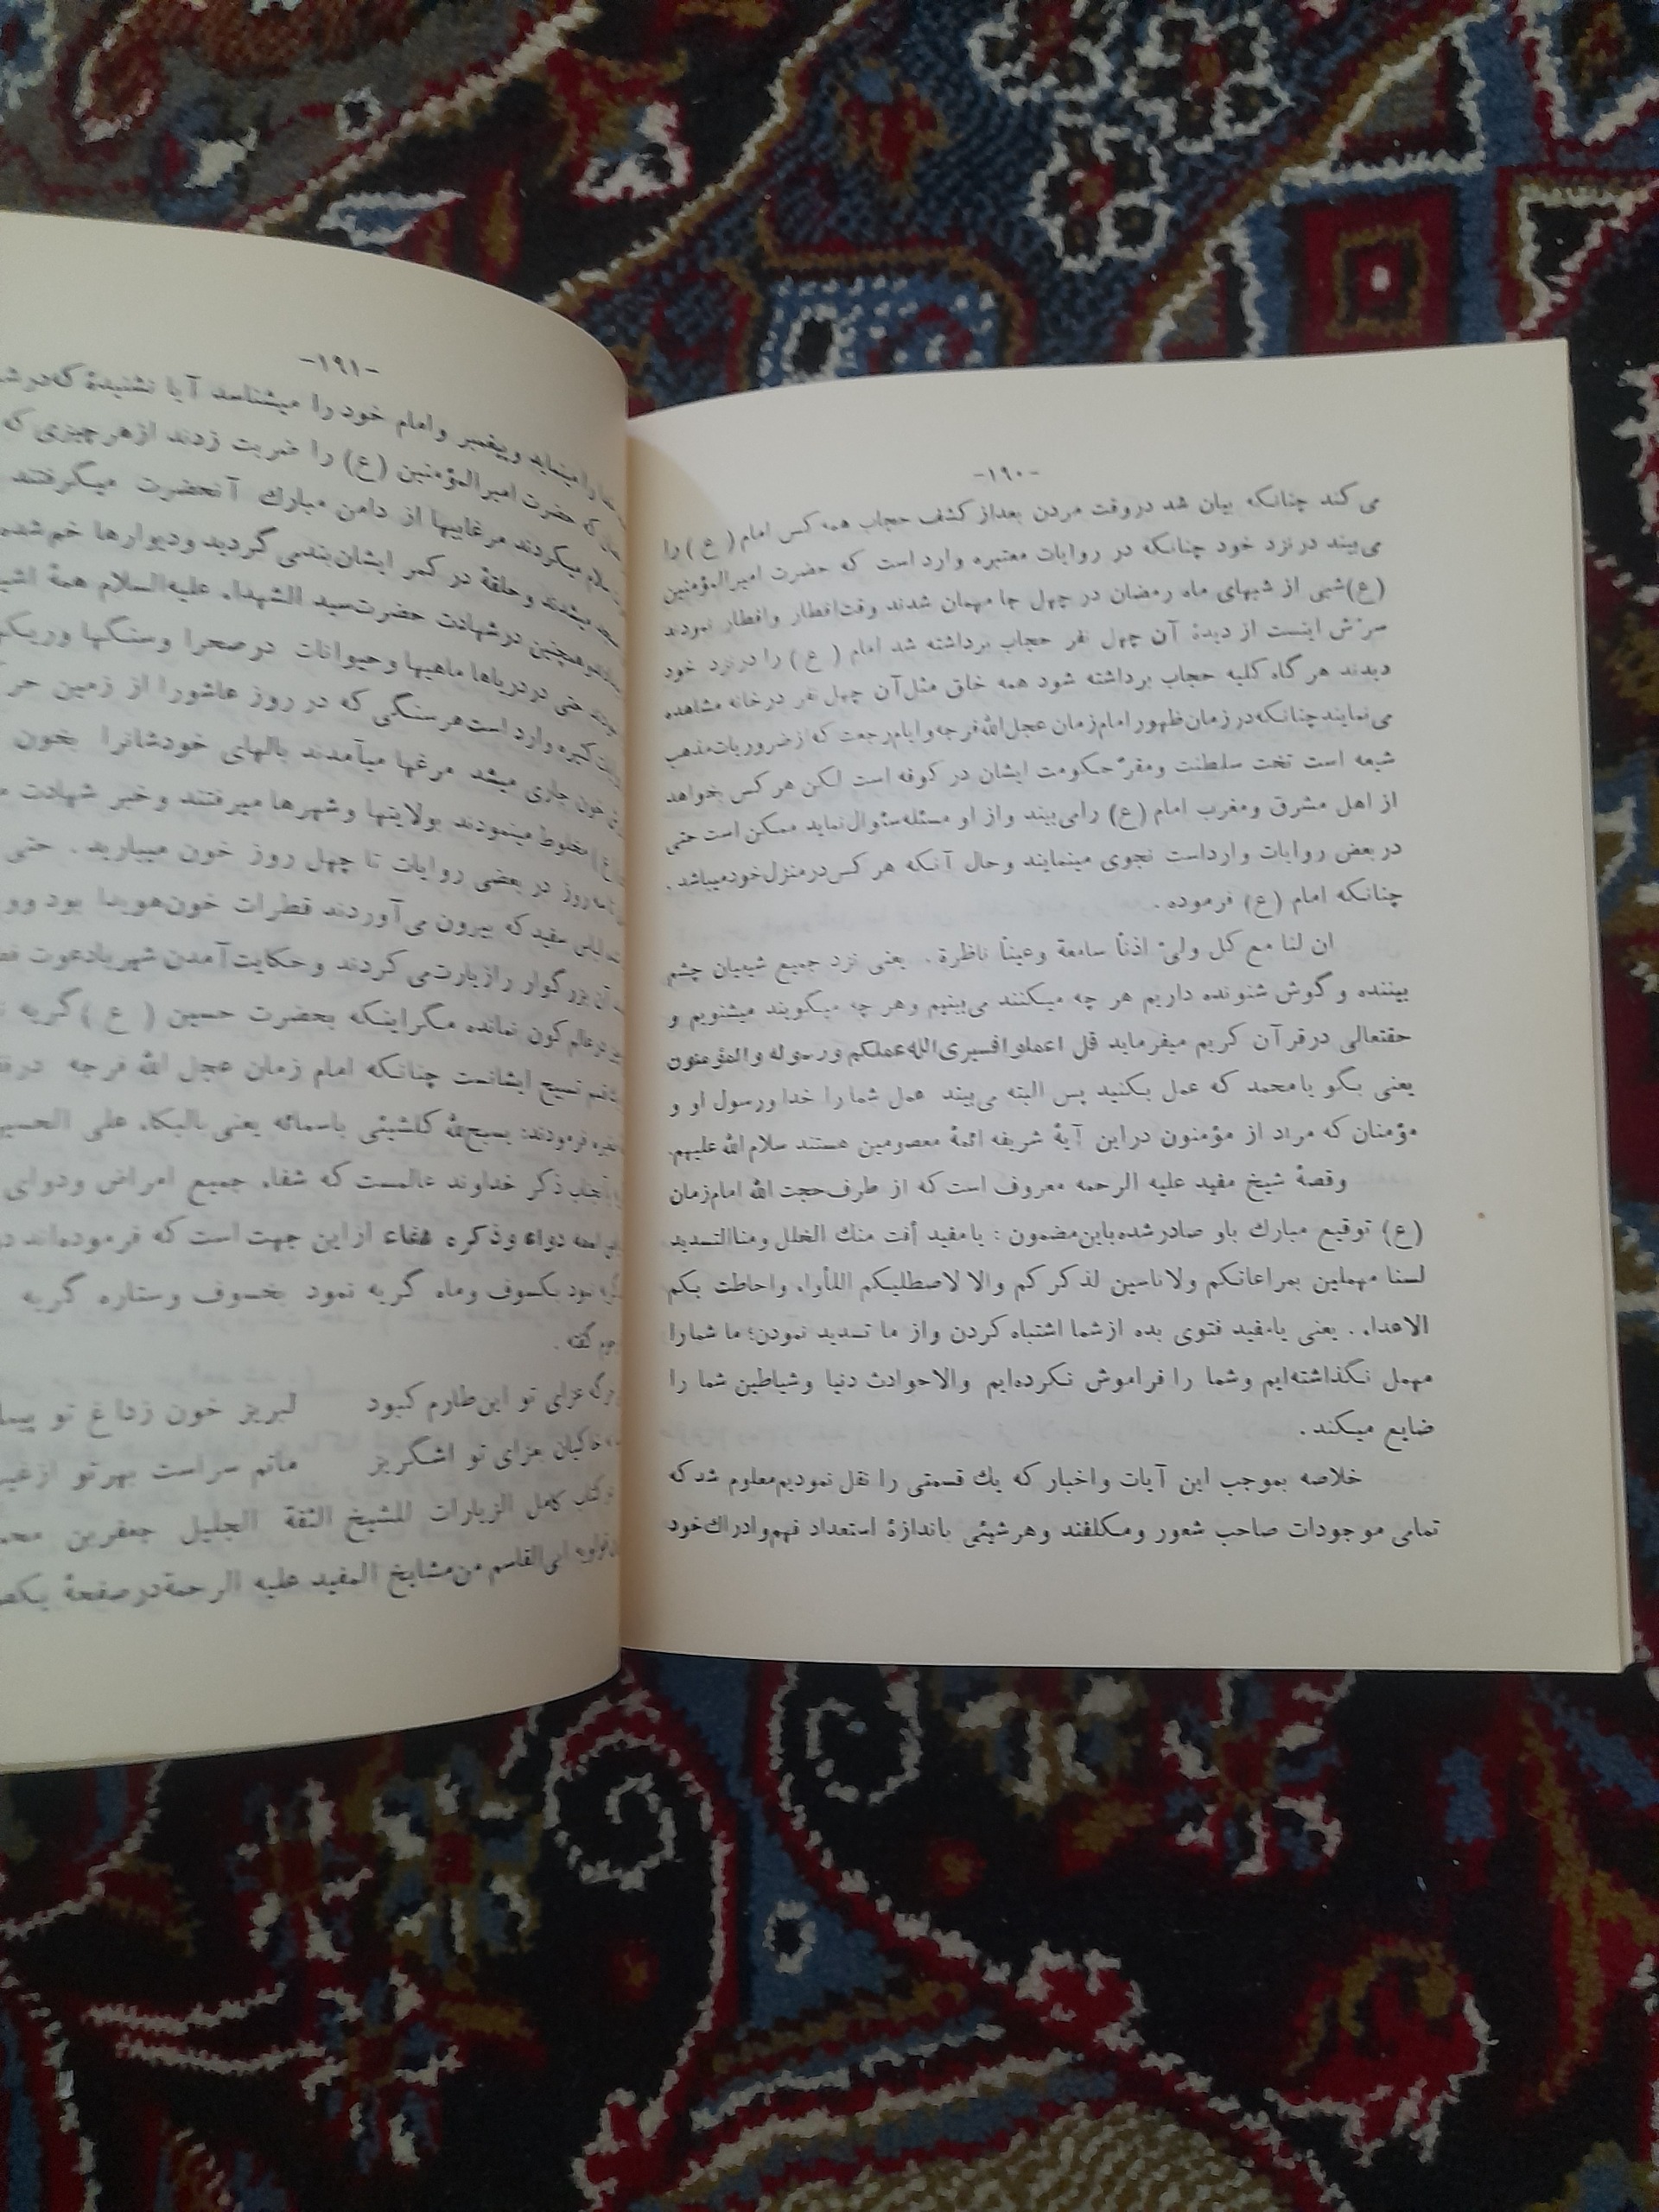 -۱۹۰-
می کند چنانکه بیان شد در وقت مردن بعد از کشف حجاب همه کس امام (ع) را
می‌بیند در نزد خود چنانکه در روایات معتبره وارد است که حضرت امیرالمؤمنین
(ع) شبی از شبهای ماه رمضان در چهل جا مهمان شدند وقت افطار و افطار نمودند
سرّش اینست از دیدهٔ آن چهل نفر حجاب برداشته شد امام (ع) را در نزد خود
دیدند هر گاه کلیه حجاب برداشته شود همه خلق مثل آن چهل نفر در خانه مشاهده
می‌نمایند چنانکه در زمان ظهور امام زمان عجل الله فرجه و ایام رجعت که از ضروریات مذهب
شیعه است تخت سلطنت و مقرّ حکومت ایشان در کوفه است لکن هر کس بخواهد
از اهل مشرق و مغرب امام (ع) را می‌بیند و از او مسئله سئوال نماید ممکن است حتی
در بعض روایات وارداست نجوی مینمایند و حال آنکه هر کس در منزل خود میباشد .
چنانکه امام (ع) فرموده .
ان لنا مع کل ولیّ اذناً سامعة وعیناً ناظرة . یعنی نزد جمیع شیعیان چشم
بیننده و گوش شنونده داریم هر چه میکنند می‌بینیم وهر چه میگویند میشنویم و
حقتعالی درقرآن کریم میفرماید قل اعملوا فسیری الله عملکم ورسوله والمؤمنون
یعنی بگو یامحمد که عمل بکنید پس البته می‌بیند عمل شما را خدا ورسول او و
مؤمنان که مراد از مؤمنون دراین آیهٔ شریفه ائمهٔ معصومین هستند سلام الله علیهم.
وقصهٔ شیخ مفید علیه الرحمه معروف است که از طرف حجت الله امام زمان
(ع) توقیع مبارك باو صادر شده باین مضمون : یامفید أفت منك الخلل ومنا التسدید
لسنا مهملین بمراعاتکم ولاناسین لذکرکم والا لاصطلیکم اللأواء واحاطت بکم
الاعداء . یعنی یامفید فتوی بده از شما اشتباه کردن واز ما تسدید نمودن؛ ما شما را
مهمل نگذاشته‌ایم وشما را فراموش نکرده‌ایم والاحوادث دنیا وشیاطین شما را
ضایع میکند .
خلاصه بموجب این آیات واخبار که یك قسمتی را نقل نمودیم معلوم شد که
تمامی موجودات صاحب شعور ومکلفند وهرشیئی باندازهٔ استعداد فهم وادراك خود
-۱۹۱-
را مینماید وپیغمبر وامام خود را میشناسد آیا نشنیدهٔ که در
که حضرت امیرالمؤمنین (ع) را ضربت زدند ازهر چیزی که
سلام میکردند مرغابیها از دامن مبارك آنحضرت میگرفتند
میشدند وحلقهٔ در کمر ایشان بند می گردید ودیوارها خم شده
وهمچنین در شهادت حضرت سید الشهداء علیه السلام همهٔ
حتی در دریاها ماهیها وحیوانات درصحرا وسنگها
کثیره وارد است هر سنگی که در روز عاشورا از زمین
خون جاری میشد مرغها میآمدند بالهای خودشانرا بخون
(ع) مخلوط مینمودند بولایتها وشهرها میرفتند وخبر شهادت
روز در بعضی روایات تا چهل روز خون میبارید . حتی
لباس سفید که بیرون می آوردند قطرات خون هویدا بود
آن بزرگوار را زیارت می کردند وحکایت آمدن شهر بادعوت
در عالم کون نمانده مگر اینکه بحضرت حسین (ع) گریه
تسبیح ایشانست چنانکه امام زمان عجل الله فرجه
فرمودند: یسبح لله کلشیئی باسمائه یعنی بالبکاء علی
ذکر خداوند عالمست که شفاء جمیع امراض ودوای
اسمه دواء وذکره شفاء ازاین جهت است که فرموده‌اند
نمود بکسوف وماه گریه نمود بخسوف وستاره گریه
گفته .
عزای تو این طارم کبود لبریز خون زداغ تو
خاکیان عزای تو اشگریز ماتم سراست بهر تو
کتاب کامل الزیارات للشیخ الثقة الجلیل جعفر بن
ابی القاسم من مشایخ المفید علیه الرحمة در صفحهٔ